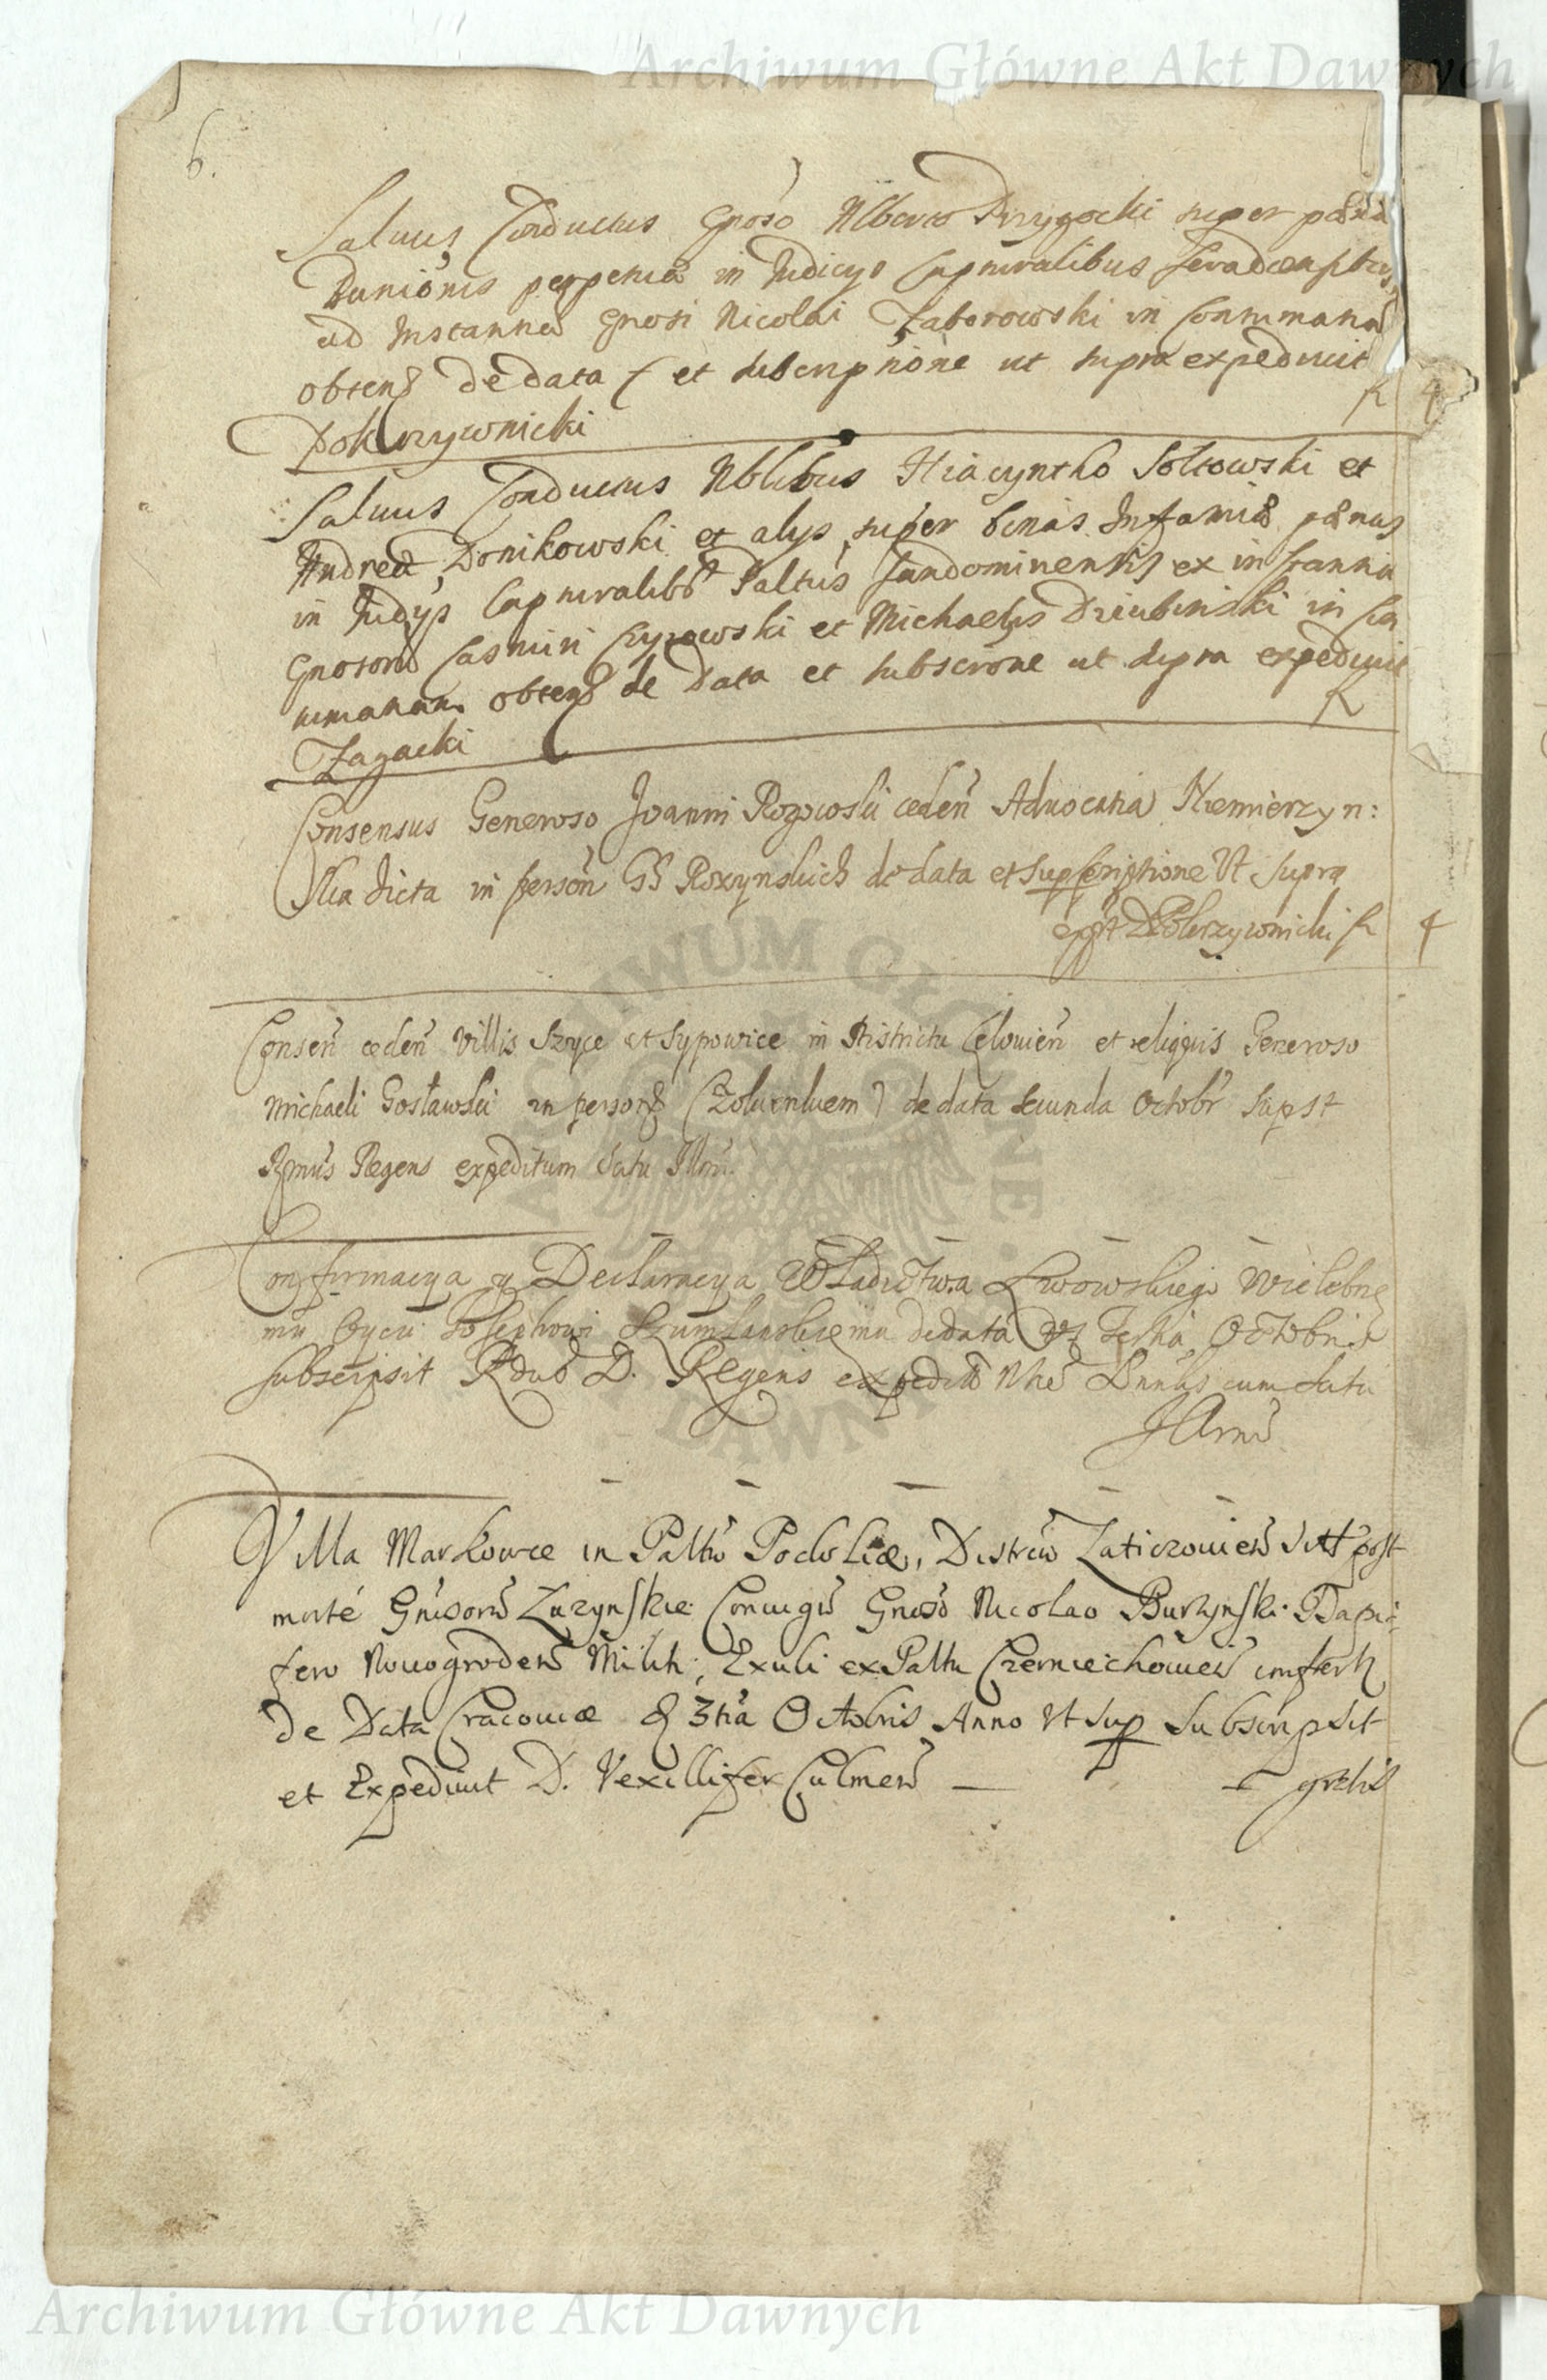 Archiwum Główne Akt Dawnych
6.
Salvus Conductus Gnoso Alberto Przygocki super paenā
Banionis perpetuā in Judicys Capturalibus
ad Instantiā Gnosi Nicolai Zaborowski in Contumaciā
obtenӡ de data et subscriptione ut supra expedivit
Pokrzywnicki R 4
Salvus Conductus Nblibus Hiacyntho Soltowski et
Andreae Donikowski et alys super binas Infamiae paenas
in Judys Capturalibӡ Paltus Sandomiriensis ex instantia
Gnosorū Casimiri Czyzowski et Michaelis Dziubinski in Con
tumaciam obtenӡ de data et subscrone ut supra expedivit
Zagacki R
Consensus Generoso Joanni Rogowski ceden̄ Advocatia Niemierzyn:
Ska dicta in person̄ GG Roxynskich de data et supscriptione Ut supra
expdt Pokrzywnicki R 4
Consen̄ ceden̄ Villis Szyce et Sypowice in Districtu Lelovien̄ et reliquis Generoso
Michaeli Gosławski in person̄ de data secunda Octobr supst
Rzmus Regens expeditum Satu Illmi.
Confirmacya y Declaracya Władictwa Lwowskiego Wielebne
mu Oycu Josephowi Szumlanskiemu de data Us Tertia Octobris
subscripsit Rdus D. Regens cum Satu
Villa Markowce in Paltu Podoliae, Districtu Laticzovien̄ sitt post
morte Gnisorū Luzynskie Coniugū Gnoso Nicolao Buczynski Dapi:
fero Novogroden̄ Milit: Exuli ex Paltu Czerniechovien̄ confertӡ
de Data Cracoviae 3tia Octobris Anno Ut sup Subscripsit
et Expedivit D. Vexillifer Culmen̄ — – gratis
ARCHIWUM GŁÓWNE AKT DAWNYCH
Archiwum Główne Akt Dawnych